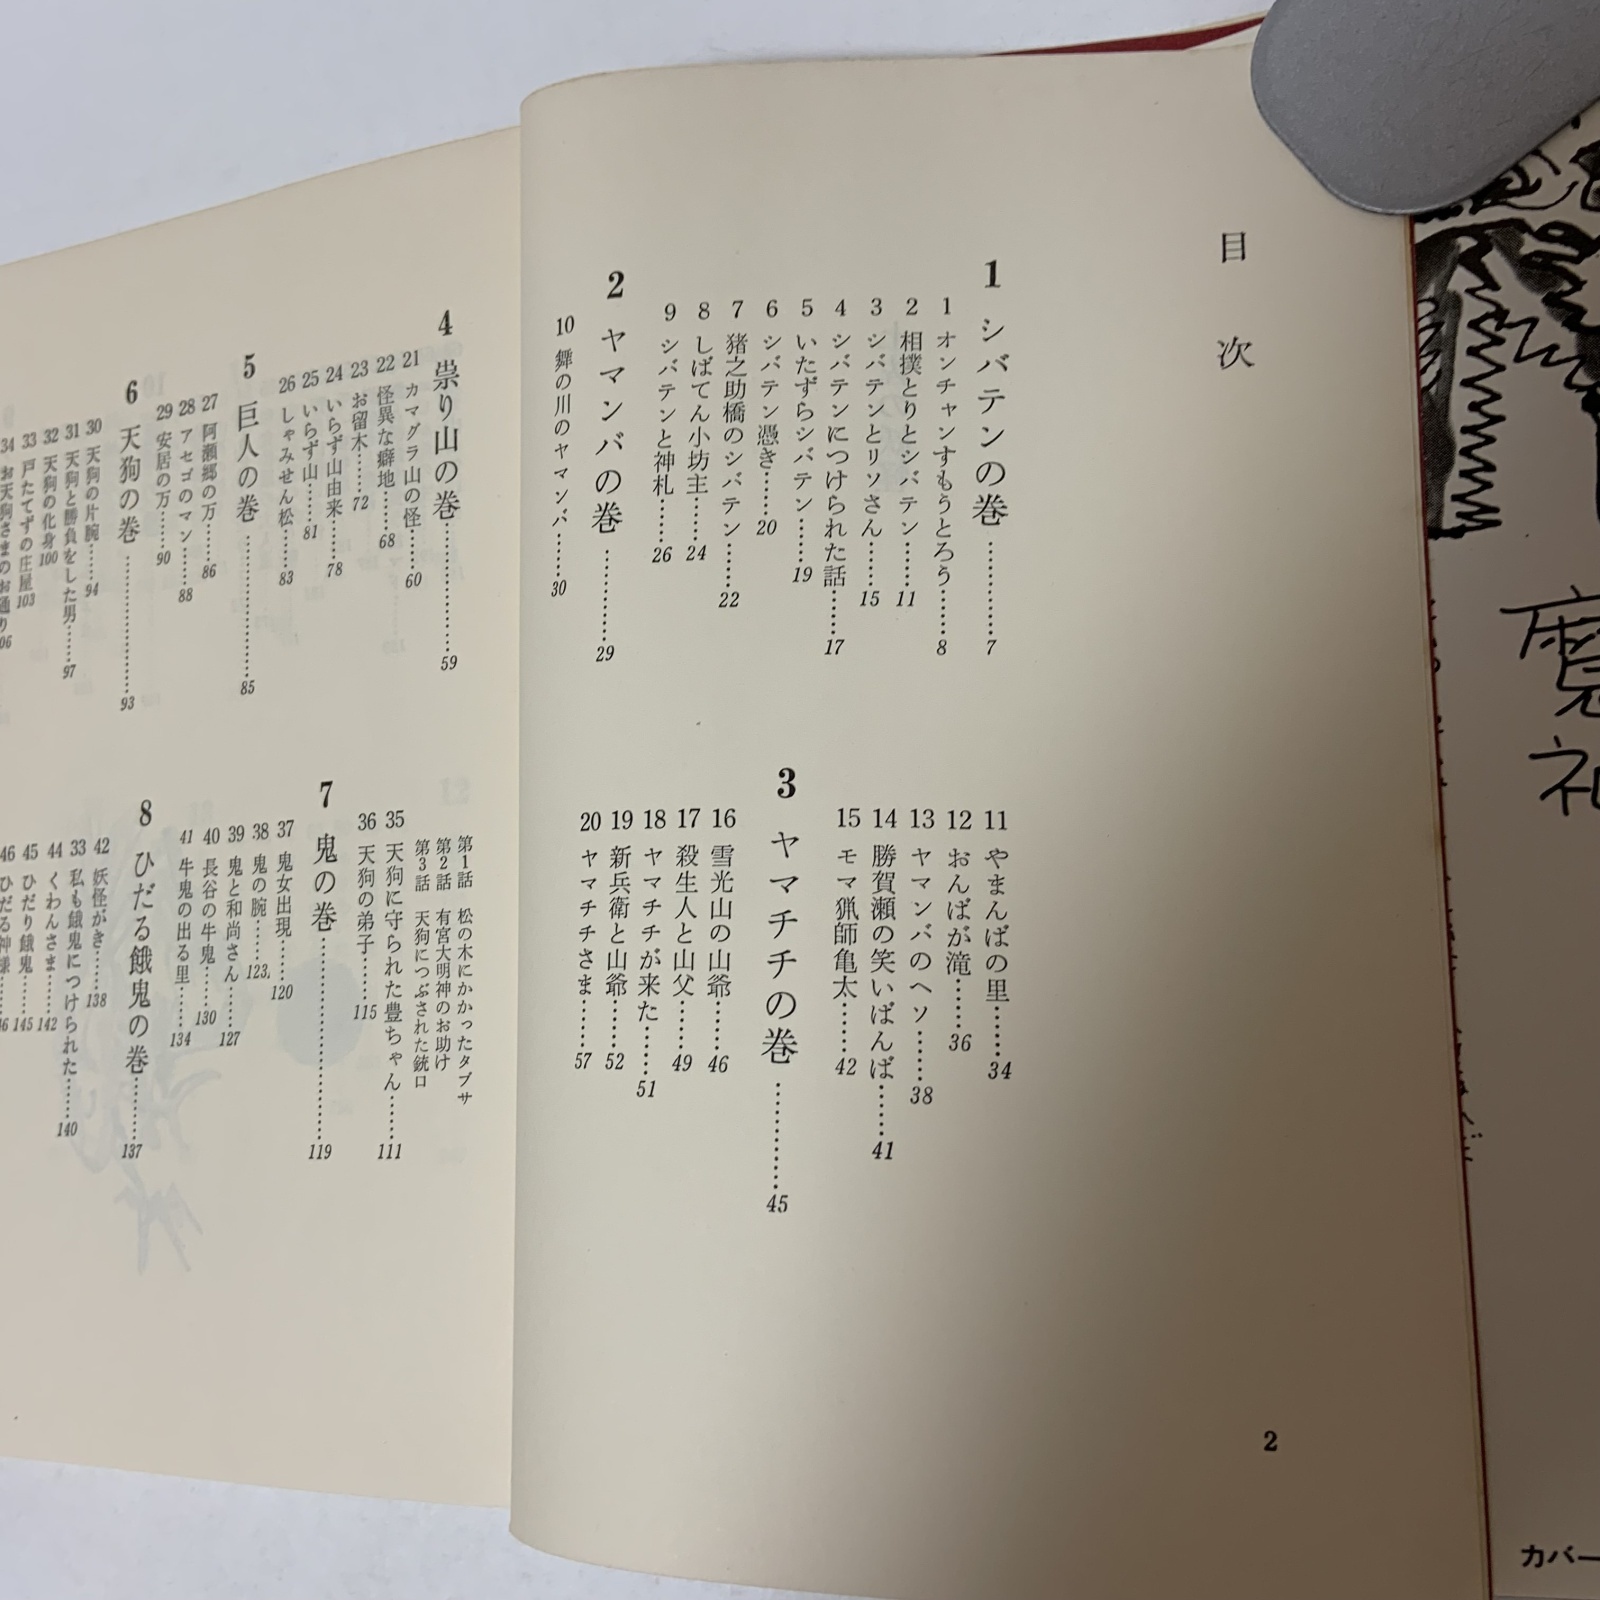 目次
1 シバテンの巻…………7
1 オンチャンすもうとろう……8
2 相撲とりとシバテン……11
3 シバテンとリソさん……15
4 シバテンにつけられた話……17
5 いたずらシバテン……19
6 シバテン憑き……20
7 猪之助橋のシバテン……22
8 しばてん小坊主……24
9 シバテンと神札……26
2 ヤマンバの巻…………29
10 舞の川のヤマンバ……30
11 やまんばの里……34
12 おんばが滝……36
13 ヤマンバのヘソ……38
14 勝賀瀬の笑いばんば……41
15 モマ猟師亀太……42
3 ヤマチチの巻…………45
16 雪光山の山爺……46
17 殺生人と山父……49
18 ヤマチチが来た……51
19 新兵衛と山爺……52
20 ヤマチチさま……57
2
4 祟り山の巻…………59
21 カマグラ山の怪……60
22 怪異な癖地……68
23 お留木……72
24 いらず山由来……78
25 いらず山……81
26 しゃみせん松……83
5 巨人の巻…………85
27 阿瀬郷の万……86
28 アセゴのマン……88
29 安居の万……90
6 天狗の巻…………93
30 天狗の片腕……94
31 天狗と勝負をした男……97
32 天狗の化身…100
33 戸たてずの庄屋…103
34 お天狗さまのお通り
第1話 松の木にかかったタブサ
第2話 有宮大明神のお助け
第3話 天狗につぶされた銃口
35 天狗に守られた豊ちゃん……111
36 天狗の弟子……115
7 鬼の巻…………119
37 鬼女出現……120
38 鬼の腕……123
39 鬼と和尚さん……127
40 長谷の牛鬼……130
41 牛鬼の出る里……134
8 ひだる餓鬼の巻…………137
42 妖怪がき……138
33 私も餓鬼につけられた……140
44 くわんさま……142
45 ひだり餓鬼……145
46 ひだる神様
魔
カバー